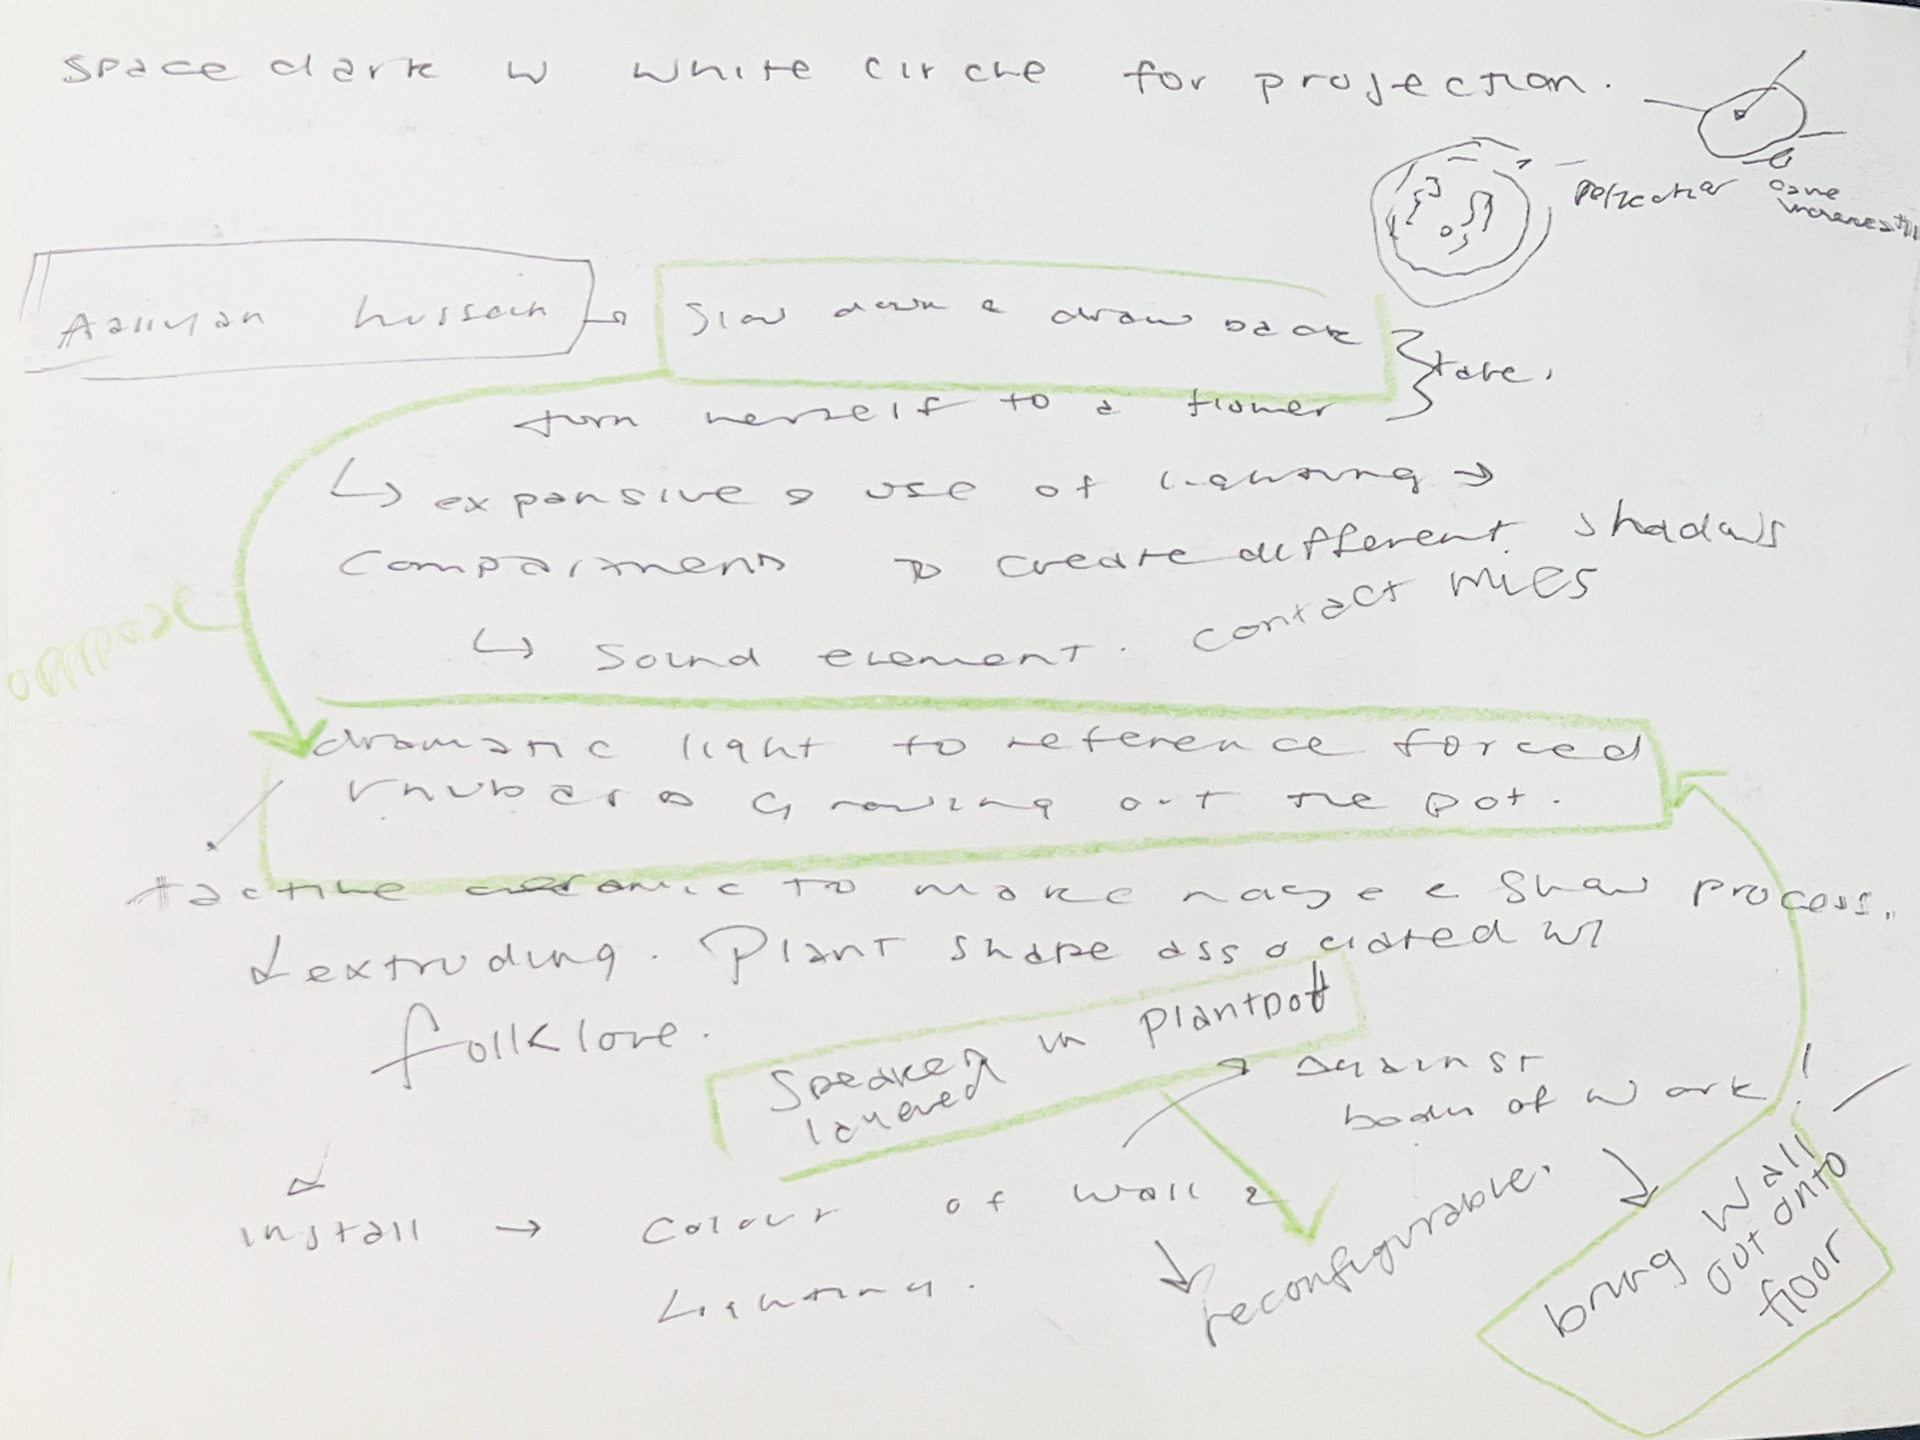 space dark w white circle for projection.
projection
Hussain → slow down & draw back
turn herself to a flower
↳ expansive use of lighting →
compartments to create different shadows
↳ sound element. contact mies
oppose
dramatic light to reference forced
rhubarb growing out the pot.
tactile ceramic to make & show process.
extruding. Plant shape associated w/
folklore.
Speaker in plantpot
layered
against
body of work!
install → colour of wall &
Lighting.
reconfigurable.
bring wall
out onto
floor